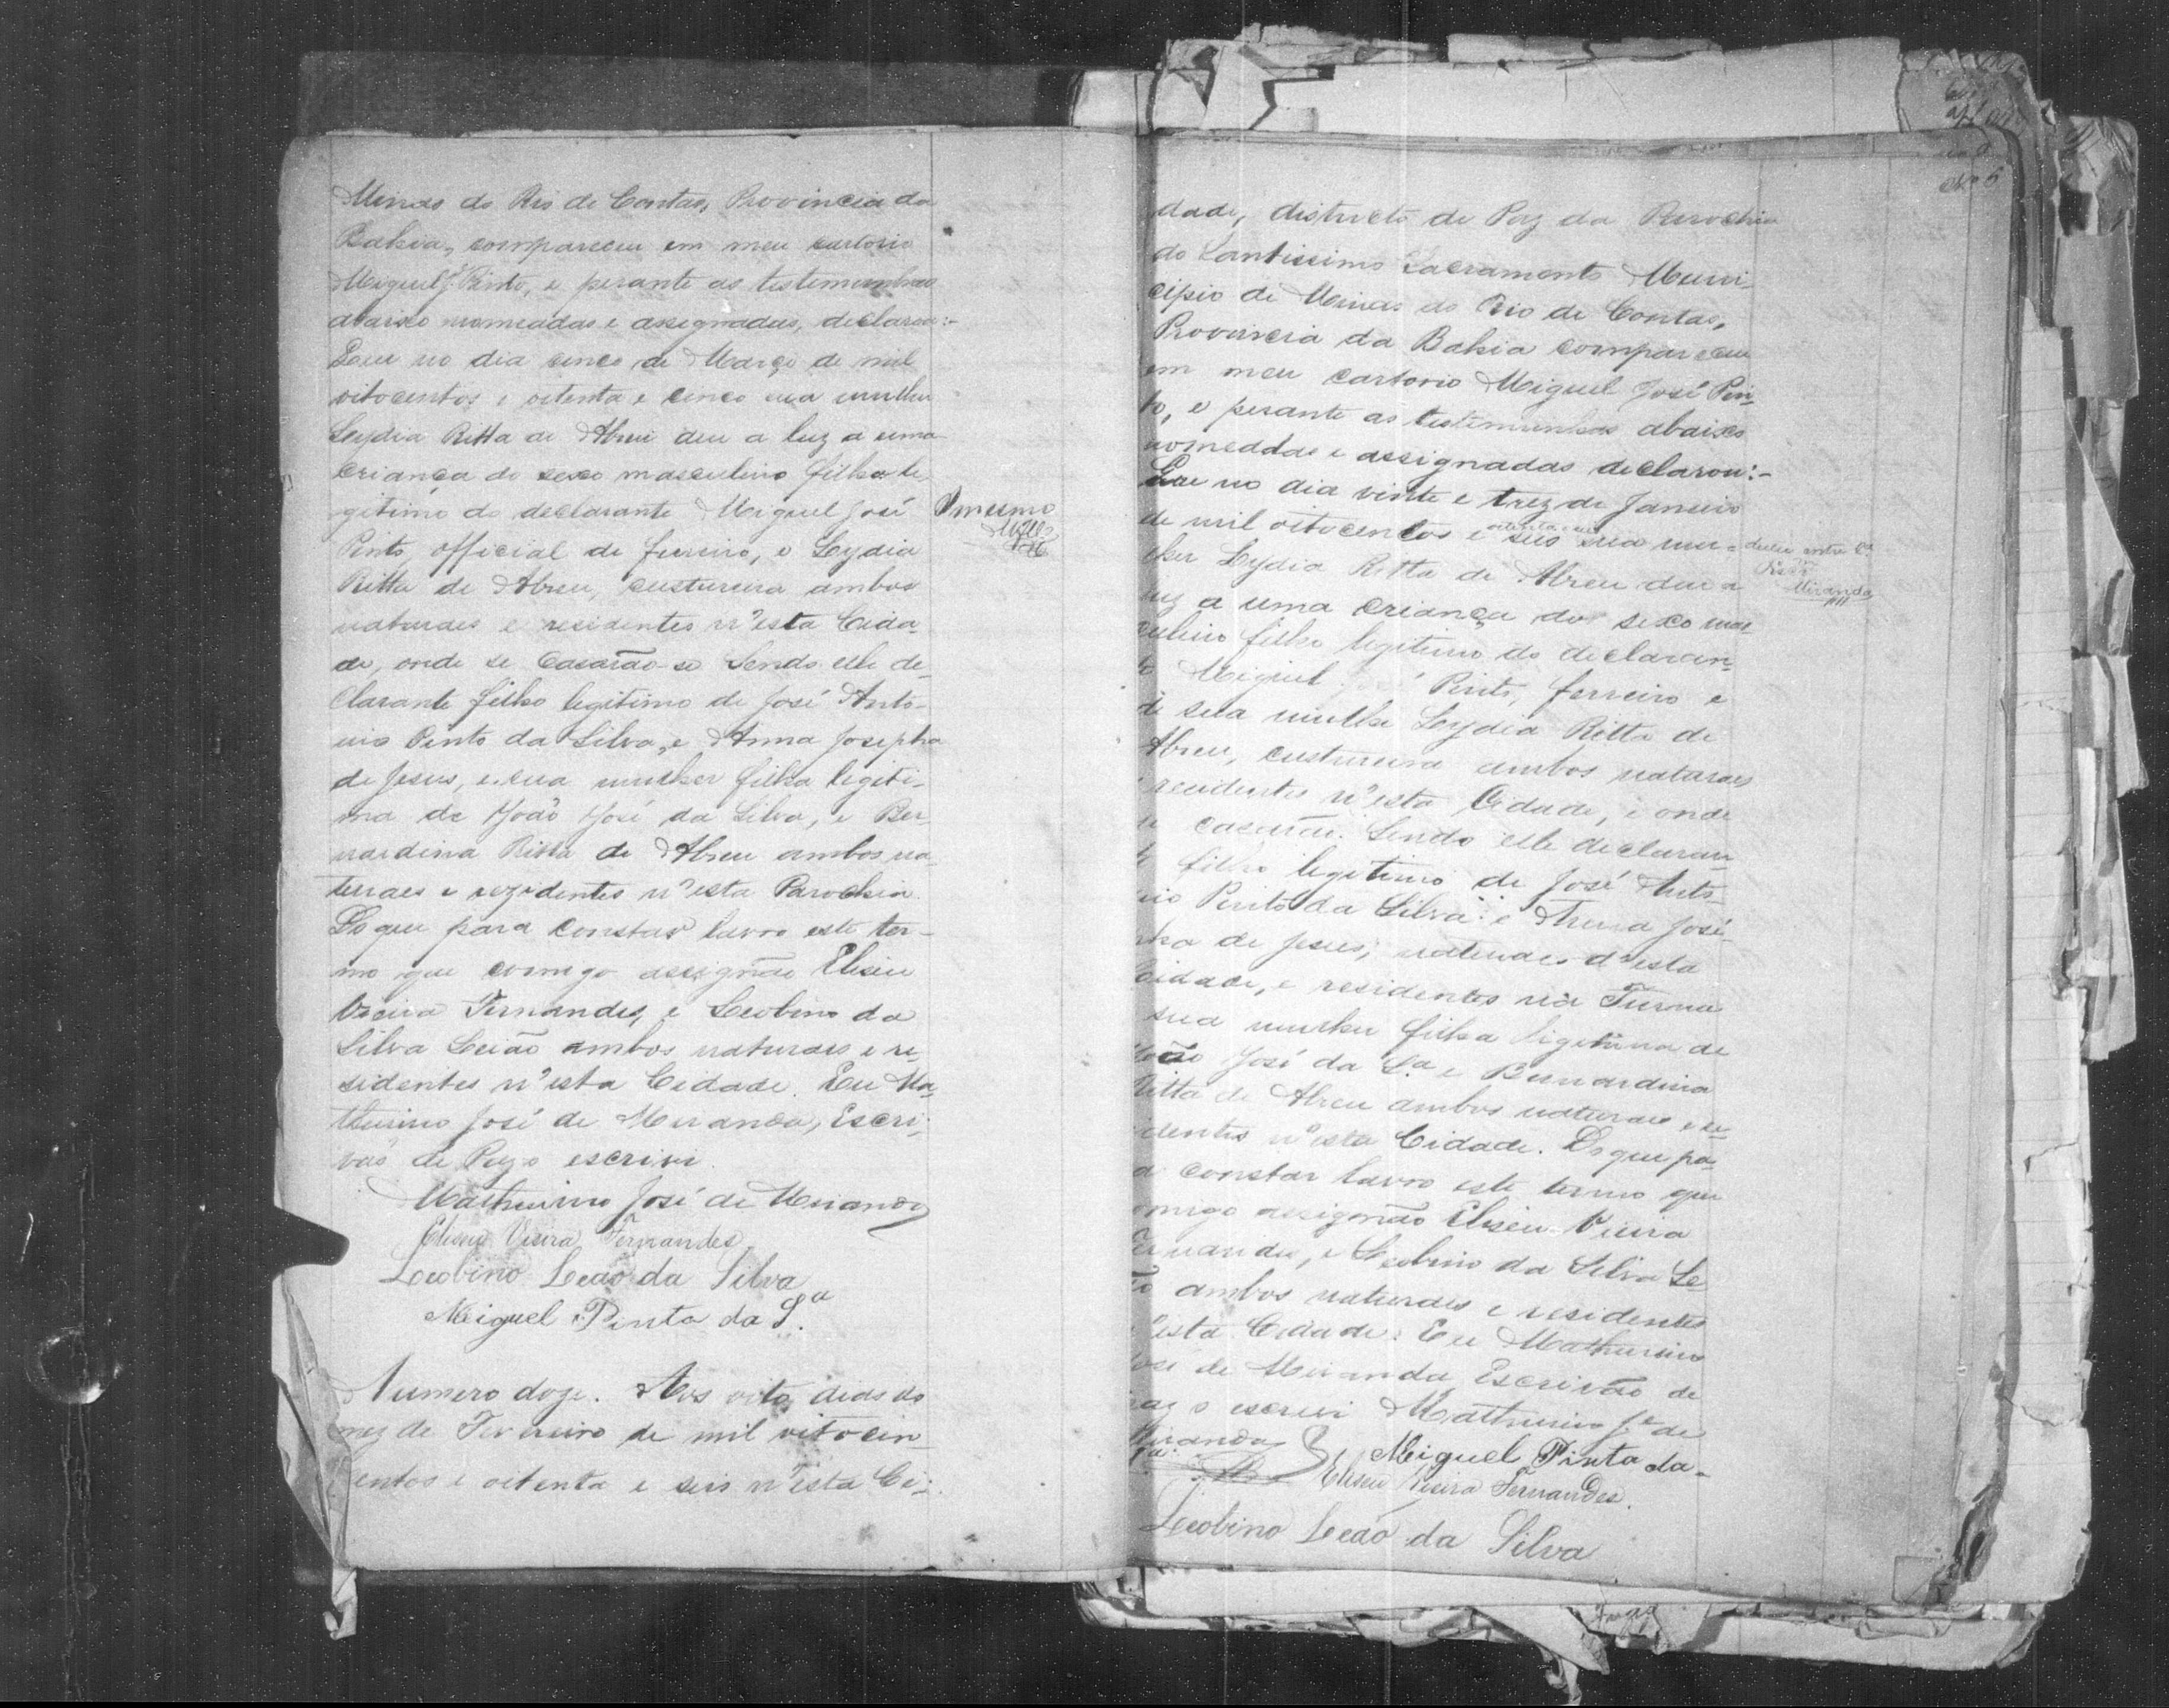 Minas do Rio de Contas, Provincia da
Bahia, compareceu em meu cartorio
Miguel J. Pinto, e perante as testemunhas
abaixo nomeadas e assignadas, declarou:-
Que no dia cinco de Março de mil
oitocentos e oitenta e cinco sua mulher
Leydia Ritta de Abreu deu a luz a uma
criança do sexo masculino filho le-
gitimo do declarante Miguel José
Pinto, official de ferreiro, e Leydia
Ritta de Abreu, custureira ambos
naturaes e residentes n'esta Cida-
de, onde se Casarão-se Sendo elle de-
clarante filho legitimo de José Anto-
nio Pinto da Silva, e Anna Josepha
de Jesus, e sua mulher filha legiti-
ma de João José da Silva, e Ber-
nardina Ritta de Abreu ambos na-
turaes e rezidentes n'esta Parochia
Do que para constar lavro este ter-
mo que comigo assignão Eliseu
Vieira Fernandes, e Leobino da
Silva Leão ambos naturaes e re-
sidentes n'esta Cidade. Eu Ma-
thurino José de Miranda, Escri-
vão de Pazo escrivi
Mathurino José de Miranda
Eliseu Vieira Fernandes
Leobino Leão da Silva
Miguel Pinto da S.ª
O mesmo
Numero doze. Aos oito dias do
mez de Fevereiro de mil oitocen-
entos e oitenta e seis n'esta Ci-
dade, districto de Paz da Parochia
do Santissimo Sacramento Muni-
cipio de Minas do Rio de Contas,
Provincia da Bahia compareceu
em meu cartorio Miguel José Pin-
to, e perante as testemunhas abaixo
nomeadas e assignadas declarou:-
Que no dia vinte e trez de Janeiro
de mil oitocentos e oitenta e seis sua mu-
lher Leydia Ritta de Abreu deu a
luz a uma criança do sexo mas-
culino filho legitimo do declaran-
te Miguel José Pinto, ferreiro e
de sua mulher Leydia Ritta de
Abreu, custureira ambos naturaes
residentes n'esta Cidade, e onde
se casarão. Sendo elle declaran-
te filho legitimo de José Anto-
nio Pinto da Silva e Anna José-
pha de Jesus, naturaes d'esta
Cidade, e residentes na Furna
sua mulher filha legitima de
João José da S.ª e Bernardina
Ritta de Abreu ambos naturaes e re-
sidentes n'esta Cidade. Do que pa-
ra constar lavro este termo que
comigo assignão Eliseu Vieira
Fernandes, e Leobino da Silva Le-
ão ambos naturaes e residentes
n'esta Cidade. Eu Mathurino
José de Miranda Escrivão de
Pazo escrevi Mathurino J.e de
Miranda
Miguel Pinto da
Eliseu Vieira Fernandes.
Leobino Leão da Silva
Miranda